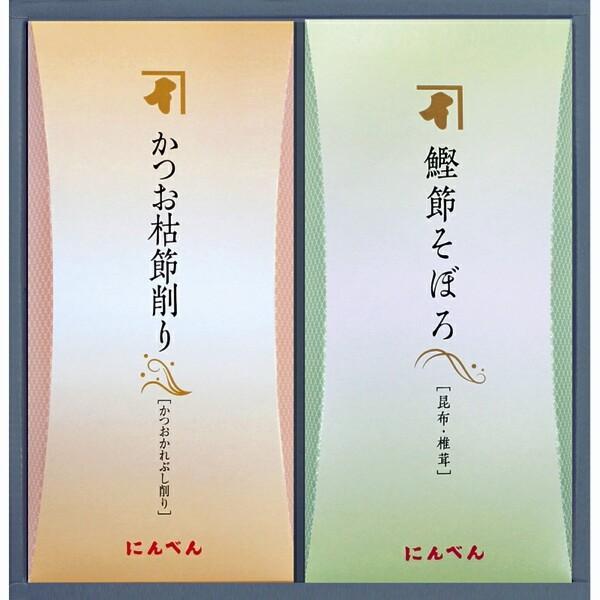 かつお枯節削り
[かつおかれぶし削り]
にんべん
鰹節そぼろ
[昆布・椎茸]
にんべん